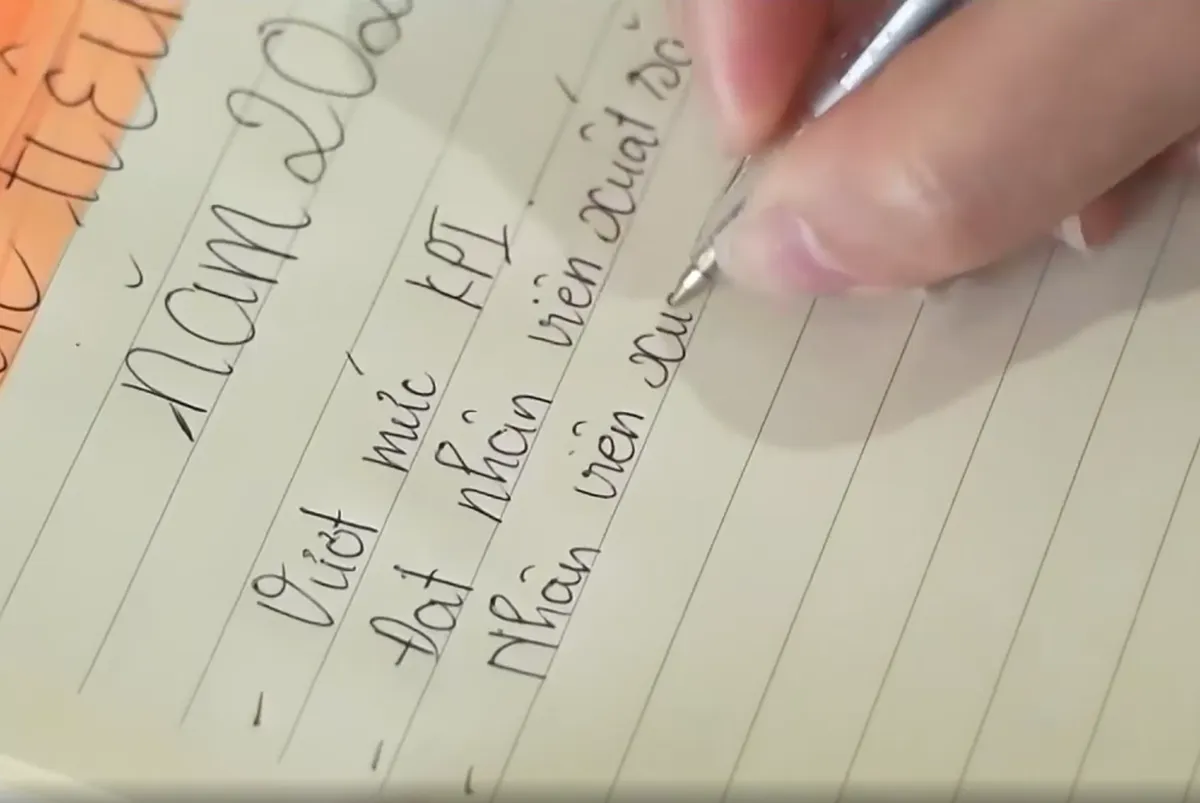 NĂM 20
- Vượt mức KPI
- Đạt nhân viên xuất sắ
- Nhân viên xu